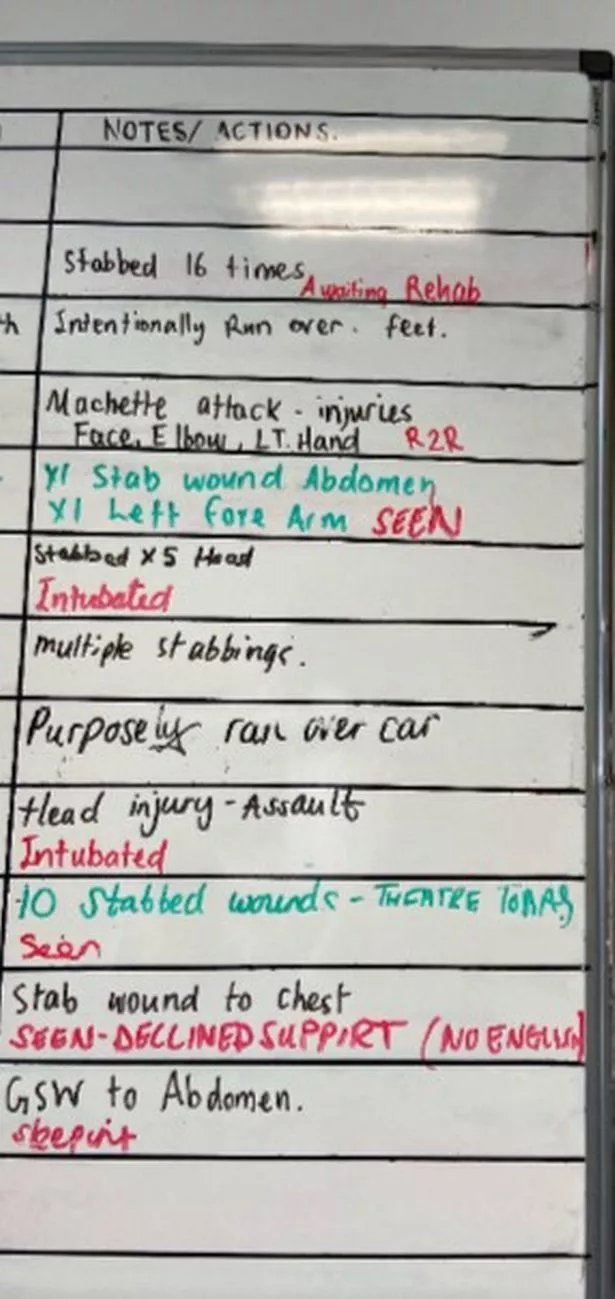 NOTES/ ACTIONS.
Stabbed 16 times
Awaiting Rehab
th Intentionally Run over. feet.
Machette attack - injuries
Face, Elbow, LT. Hand R2R
X1 Stab wound Abdomen
X1 Left fore Arm SEEN
Stabbed X5 Head
Intubated
multiple stabbings.
Purposely ran over car
Head injury - Assault
Intubated
10 Stabbed wounds - THEATRE TODAY
Seen
Stab wound to chest
SEEN-DECLINED SUPPORT (NO ENGLISH)
GSW to Abdomen.